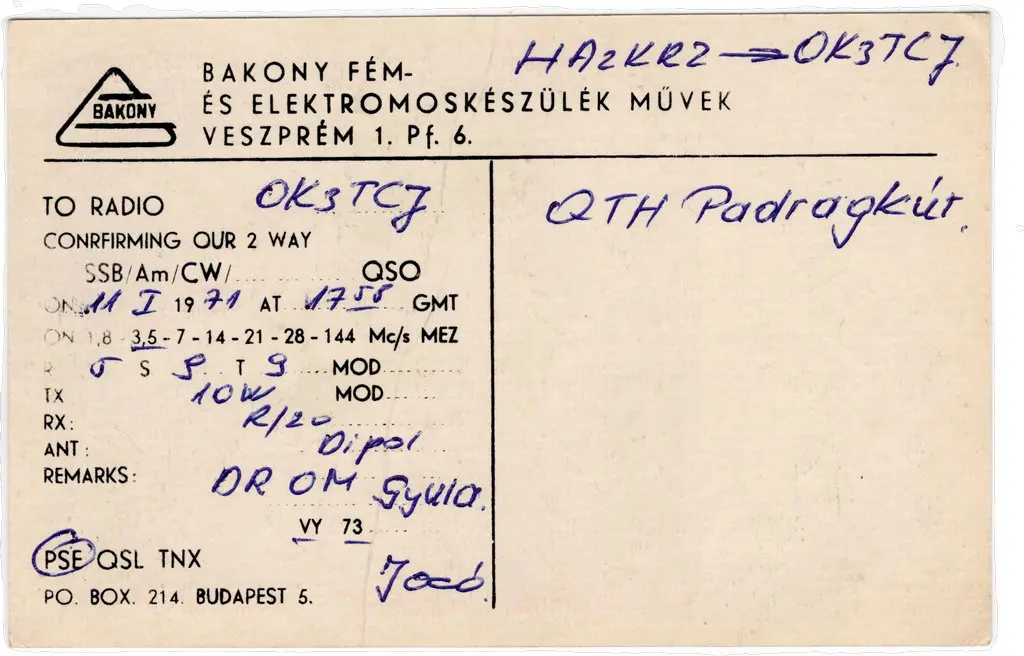 HA2KRZ → OK3TCJ
BAKONY
BAKONY FÉM-
ÉS ELEKTROMOSKÉSZÜLÉK MŰVEK
VESZPRÉM 1. Pf. 6.
TO RADIO OK3TCJ
CONRFIRMING OUR 2 WAY
SSB/Am/CW/ QSO
ON 11 I 1971 AT 17 58 GMT
ON 1,8 3,5-7-14-21-28-144 Mc/s MEZ
R 5 S 9 T 9 MOD
TX 10W MOD
RX: R/20
ANT: Dipol
REMARKS: DR OM Gyula.
VY 73
PSE QSL TNX
Jocó.
PO. BOX. 214. BUDAPEST 5.
QTH Padragkút.